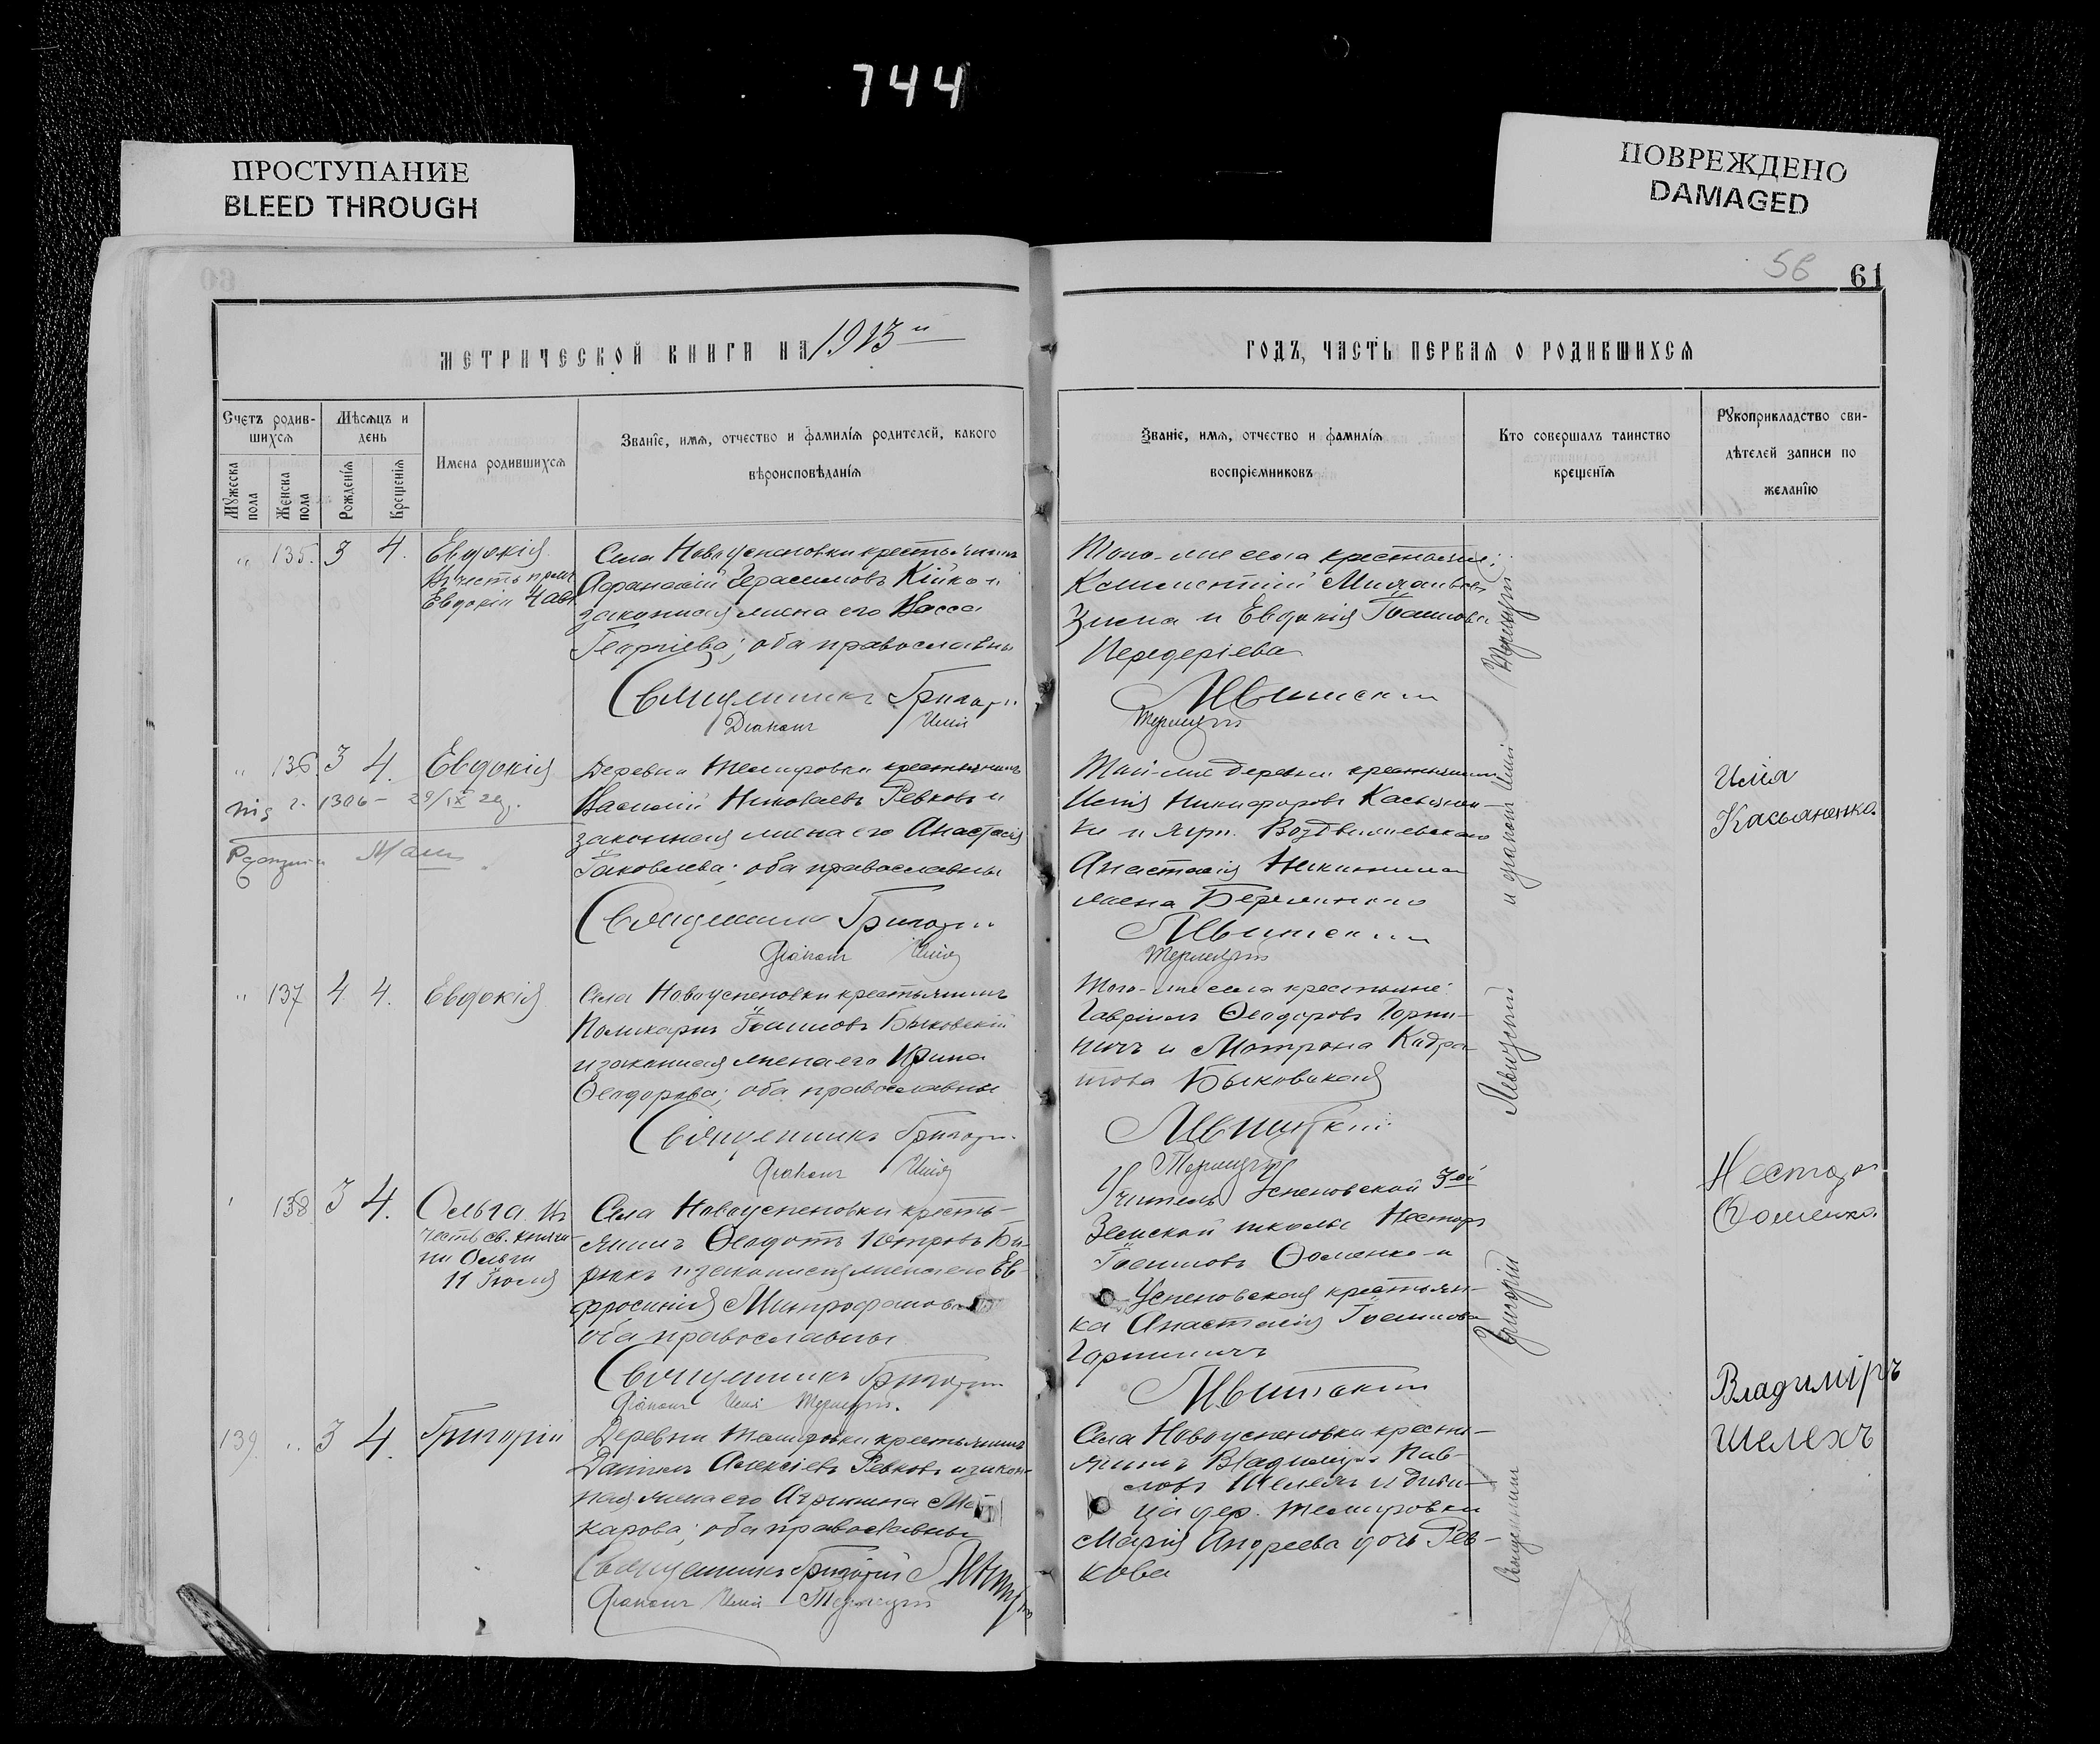 744
ПРОСТУПАНИЕ
BLEED THROUGH
ПОВРЕЖДЕНО
DAMAGED
61
МЕТРИЧЕСКОЙ КНИГИ НА 1913й
ГОДЪ, ЧАСТЬ ПЕРВАЯ О РОДИВШИХСЯ
Счетъ родив-
шихся
Мужеска
пола
Женска
пола
Мѣсяцъ и
день
Рожденія
Крещенія
Имена родившихся
Званіе, имя, отчество и фамилія родителей, какого
вѣроисповѣданія
Званіе, имя, отчество и фамилія
воспріемниковъ
Кто совершалъ таинство
крещенія
Рукоприкладство сви-
дѣтелей записи по
желанію
135. 3 4. Евдокія
Евдокіи
Села Новоуспеновки крестьянинъ
Афанасій Герасимовъ Кійко и
законная жена его Васса
Георгіева; оба православны
Священникъ Григорій
Діаконъ Илія
Того-же села крестьяне:
Климентій Михаиловъ
Зима и Евдокія Іоаннова
Передеріева
136. 3 4. Евдокія
1306 - 29/IX
Деревни Темировки крестьянинъ
Василій Николаевъ Ревковъ и
законная жена его Анастасія
Іаковлева; оба православны
Священникъ Григорій
Діаконъ Илія
Той-же деревни крестьянинъ
Илія Никифоровъ Касьянен-
ко и Воздвиженскаго
Анастасія
жена
Илія
Касьяненко.
137 4 4. Евдокія
Села Новоуспеновки крестьянинъ
Поликарпъ Іоанновъ Быковскій
и законная жена его Ирина
Ѳеодорова; оба православны
Священникъ Григорій
Діаконъ Илія
Того-же села крестьяне:
Гавріилъ Ѳеодоровъ Горпи-
ничъ и Мотрона Кидра-
това Быковская
Левитскій
138 3 4. Ольга. Въ
честь св. княги-
ни Ольги
11 Іюля
Села Новоуспеновки кресть-
янинъ Ѳеодотъ Петровъ Би-
рюкъ и законная жена его Ев-
фросинія Митрофанова
оба православны
Священникъ Григорій
Діаконъ Илія
Учитель Успеновской 3ей
Земской школы Несторъ
Іоанновъ Ѳоменко и
Успеновская крестьян-
ка Анастасія Іоаннова
Горпиничъ
Несторъ
Ѳоменко
139. 3 4. Григорій
Деревни Темировки крестьянинъ
Даніилъ Алексіевъ Ревковъ и закон-
ная жена его Агрипина Ма-
карова; оба православны
Священникъ Григорій
Діаконъ Илія
Села Новоуспеновки кресть-
янинъ Владиміръ Пав-
ловъ Шелехъ и дѣви-
ца дер. Темировки
Марія Андреева дочь Рев-
кова
Владиміръ
Шелехъ
Священникъ Григорій Левицкій и діаконъ Илій